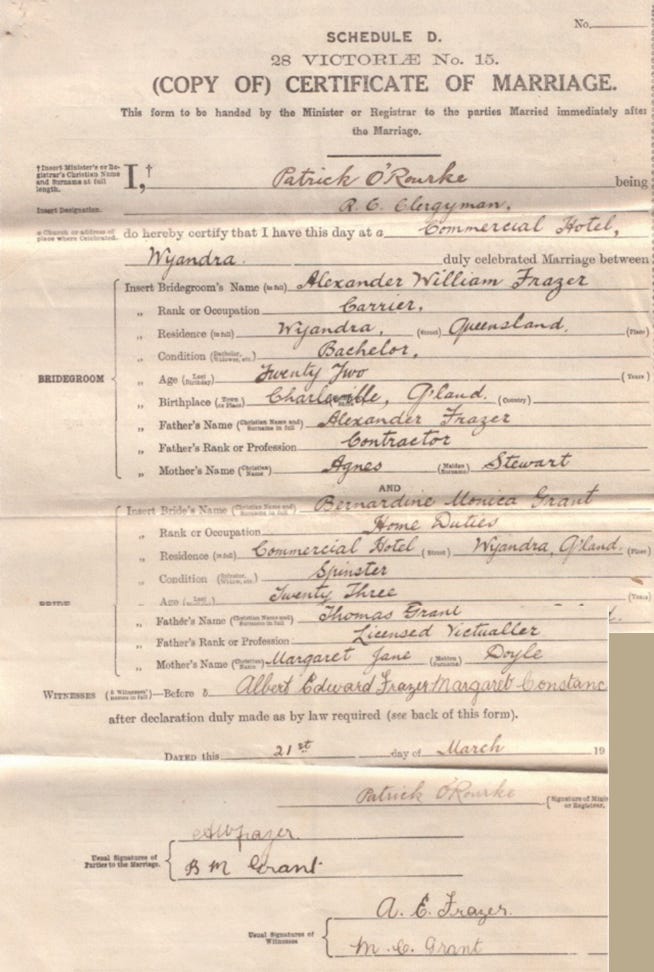 No.
SCHEDULE D.
28 VICTORIÆ No. 15.
(COPY OF) CERTIFICATE OF MARRIAGE.
This form to be handed by the Minister or Registrar to the parties Married immediately after
the Marriage.
† Insert Minister's or Registrar's Christian Name and Surname at full length. I,† Patrick O'Rourke being
Insert Designation. R. C. Clergyman,
a Church or address of place where Celebrated. do hereby certify that I have this day at a Commercial Hotel,
Wyandra. duly celebrated Marriage between
Insert Bridegroom's Name (in full) Alexander William Frazer
„ Rank or Occupation Carrier,
„ Residence (in full) Wyandra, (Street) Queensland. (Place)
„ Condition (Bachelor, Widower, etc.) Bachelor,
BRIDEGROOM „ Age (Last Birthday) Twenty Two (Years)
„ Birthplace (Town or Place) Charleville, Q'land. (Country)
„ Father's Name (Christian Name and Surname in full) Alexander Frazer
„ Father's Rank or Profession Contractor
„ Mother's Name (Christian Name) Agnes (Maiden Surname) Stewart
AND
Insert Bride's Name (Christian Name and Surname in full) Bernardine Monica Grant
„ Rank or Occupation Home Duties
„ Residence (in full) Commercial Hotel (Street) Wyandra, Q'land. (Place)
„ Condition (Spinster, Widow, etc.) Spinster
BRIDE „ Age (Last Twenty Three (Years)
„ Father's Name (Christian Name and Surname in full) Thomas Grant
„ Father's Rank or Profession Licensed Victualler
„ Mother's Name (Christian Name) Margaret Jane (Maiden Surname) Doyle
WITNESSES (b Witnesses' Names in full)—Before b Albert Edward Frazer Margaret Constanc
after declaration duly made as by law required (see back of this form).
DATED this 21st day of March 19
Patrick O'Rourke (Signature of Minis or Registrar,
A W Frazer.
Usual Signatures of Parties to the Marriage.
B M Grant
A. E. Frazer.
Usual Signatures of Witnesses
M. C. Grant